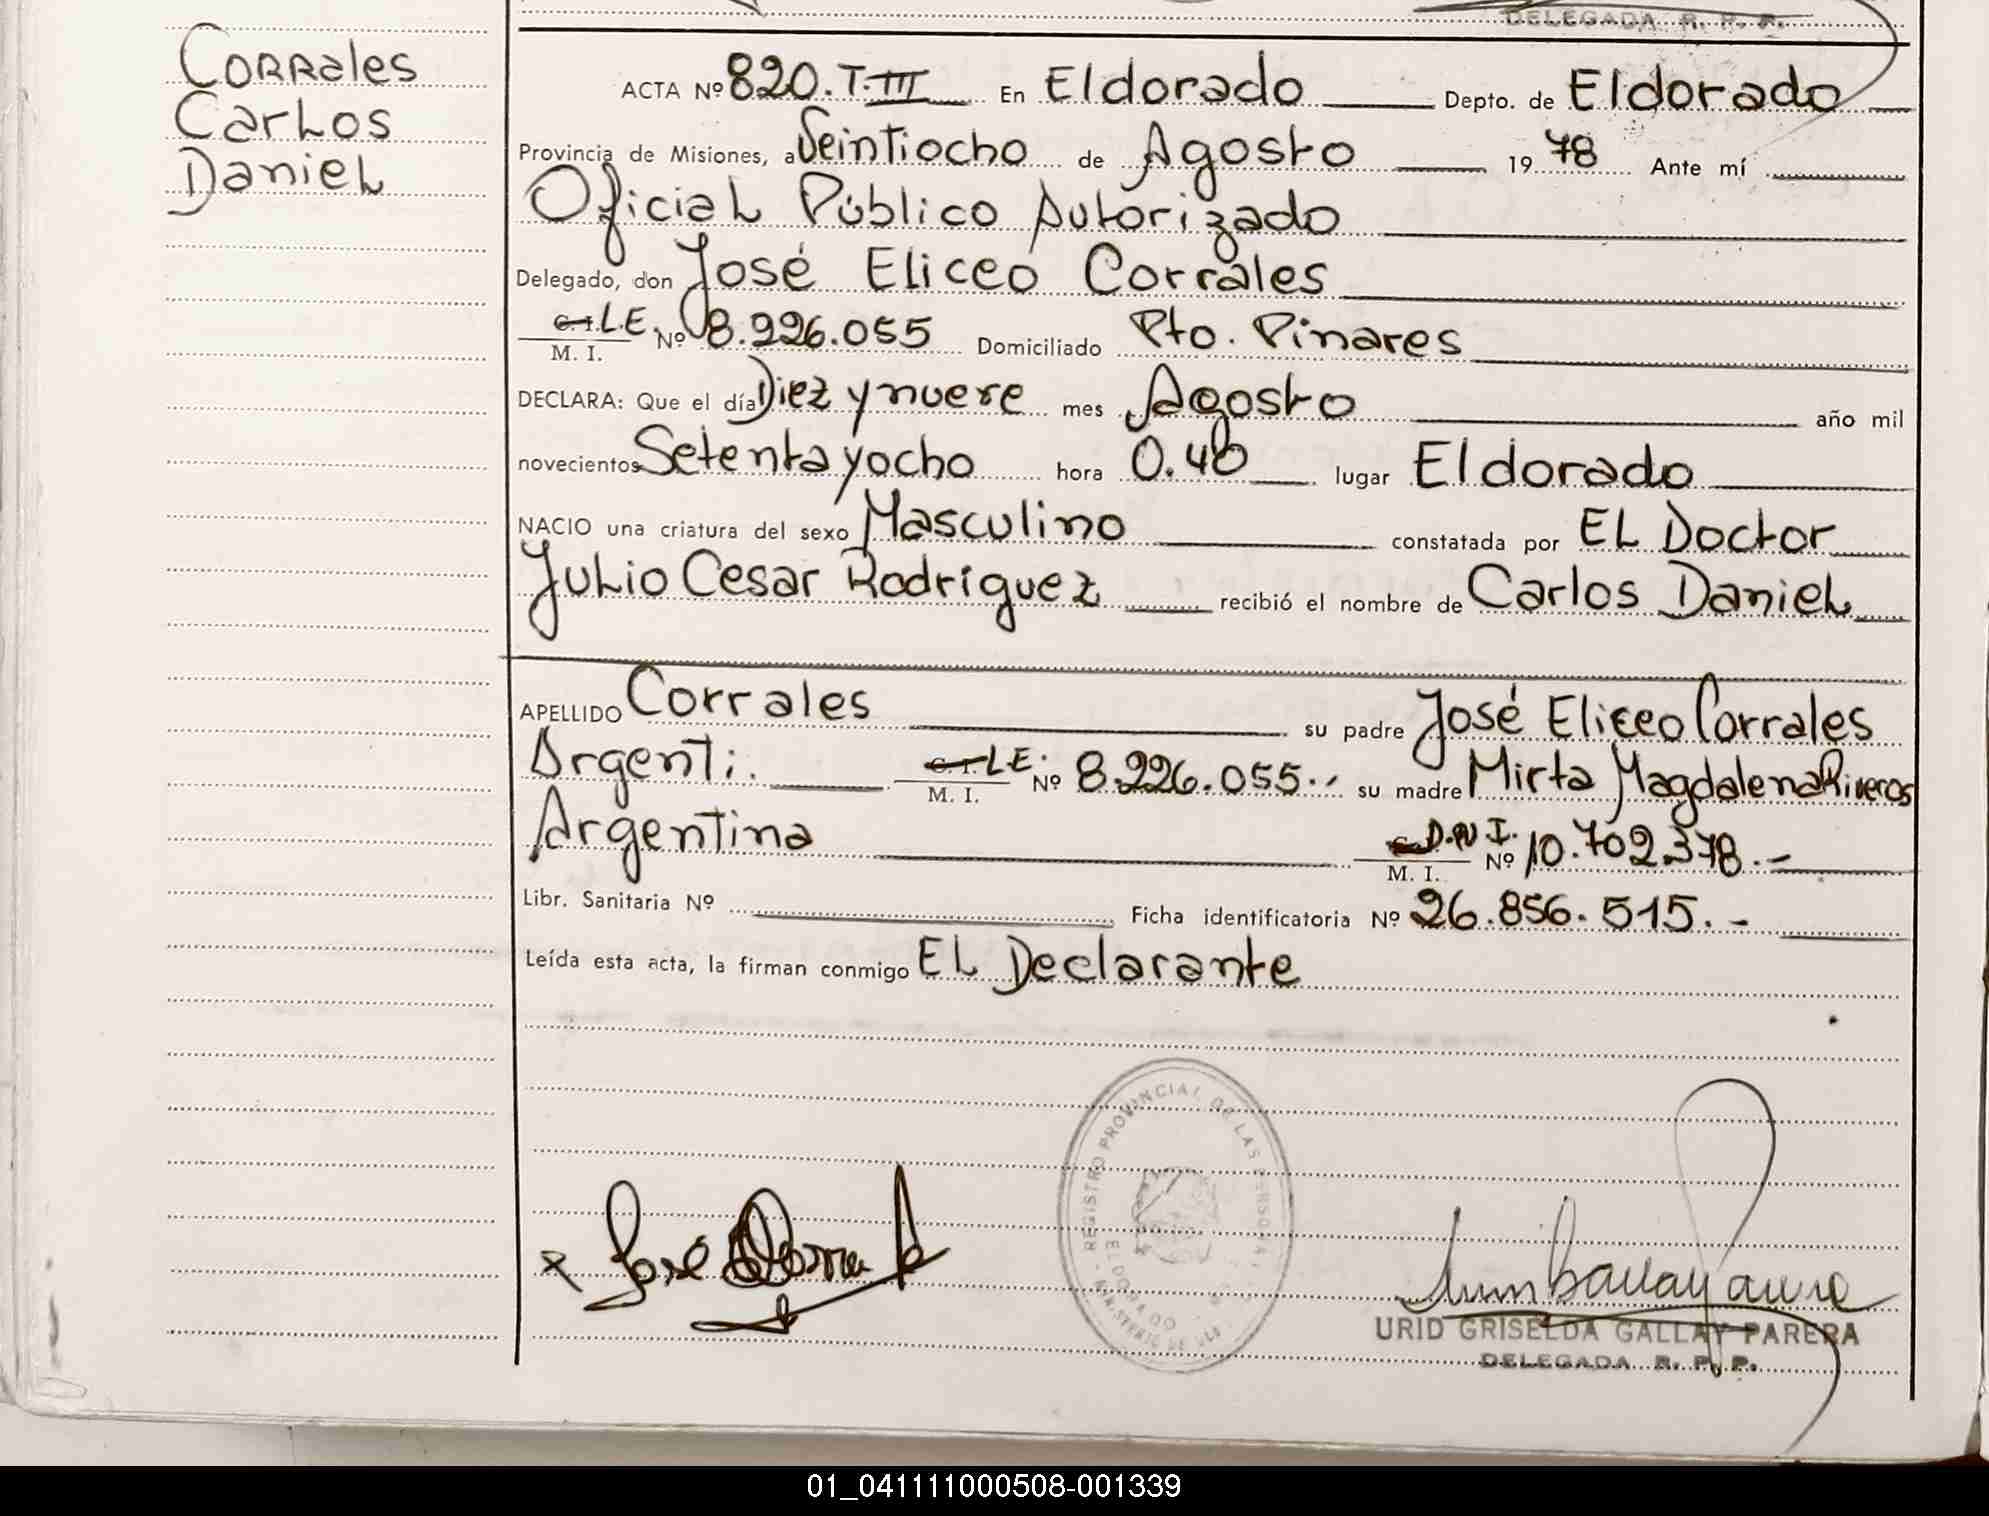 DELEGADA R. P. P.
Corrales
Carlos
Daniel
ACTA Nº 820. T. III En Eldorado Depto. de Eldorado
Provincia de Misiones, a Veintiocho de Agosto 19 78 Ante mí
Oficial Público Autorizado
Delegado, don José Eliceo Corrales
C. I. L.E. Nº 8.226.055 Domiciliado Pto. Pinares
M. I.
DECLARA: Que el día Diez y nueve mes Agosto año mil
novecientos Setenta y ocho hora 0.40 lugar Eldorado
NACIO una criatura del sexo Masculino constatada por El Doctor
Julio Cesar Rodríguez recibió el nombre de Carlos Daniel
APELLIDO Corrales su padre José Eliceo Corrales
Argenti. C. I. L.E. Nº 8.226.055.- su madre Mirta Magdalena Riveros
M. I.
Argentina D.N.I. Nº 10.702.378.-
M. I.
Libr. Sanitaria Nº Ficha identificatoria Nº 26.856.515.-
Leída esta acta, la firman conmigo El Declarante
REGISTRO PROVINCIAL DE LAS PERSONAS
ELDORADO
x José
URID GRISELDA GALLAY PARERA
DELEGADA R. P. P.
01_041111000508-001339